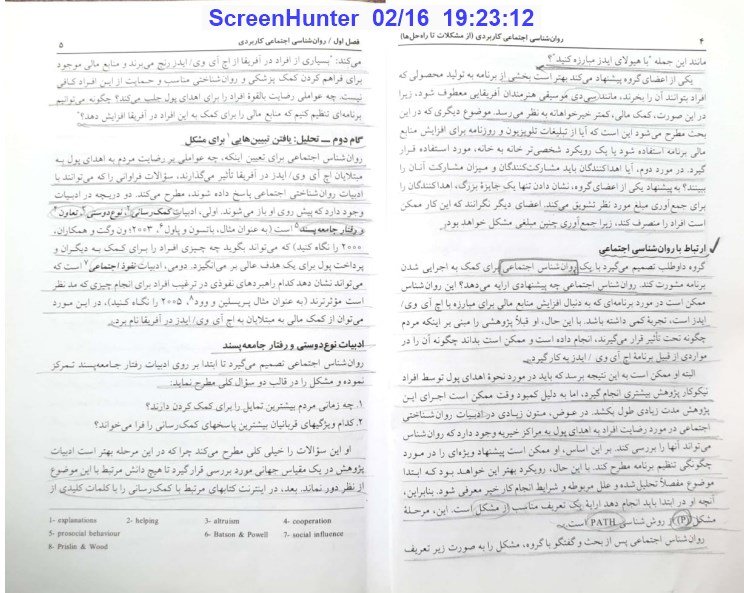 ScreenHunter 02/16 19:23:12
۴ روان‌شناسی اجتماعی کاربردی (از مشکلات تا راه‌حل‌ها)
مانند این جمله "با هیولای ایدز مبارزه کنید"؟
یکی از اعضای گروه پیشنهاد می‌کند بهتر است بخشی از برنامه به تولید محصولی که
افراد بتوانند آن را بخرند، مانند سی‌دی موسیقی هنرمندان آفریقایی معطوف شود، زیرا
در این صورت، کمک مالی، کمتر خیرخواهانه به نظر می‌رسد. موضوع دیگری که در این
بحث مطرح می‌شود این است که آیا از تبلیغات تلویزیون و روزنامه برای افزایش منابع
مالی برنامه استفاده شود یا یک رویکرد شخصی‌تر خانه به خانه، مورد استفاده قرار
گیرد. در مورد دوم، آیا اهداکنندگان باید مشارکت‌کنندگان و میزان مشارکت آنان را
ببینند؟ به پیشنهاد یکی از اعضای گروه، نشان دادن تنها یک جایزهٔ بزرگ، اهداکنندگان را
برای جمع‌آوری مبلغ مورد نظر تشویق می‌کند. اعضای دیگر نگرانند که این کار ممکن
است افراد را منصرف کند، زیرا جمع‌آوری چنین مبلغی مشکل خواهد بود.
ارتباط با روان‌شناسی اجتماعی
گروه داوطلب تصمیم می‌گیرد با یک روان‌شناس اجتماعی برای کمک به اجرایی شدن
برنامه مشورت کند. روان‌شناس اجتماعی چه پیشنهادی ارایه می‌دهد؟ این روان‌شناس
ممکن است در مورد برنامه‌ای که به دنبال افزایش منابع مالی برای مبارزه با اچ آی وی/
ایدز است، تجربهٔ کمی داشته باشد. با این حال، او قبلاً پژوهشی را مبنی بر اینکه مردم
چگونه تحت تأثیر قرار می‌گیرند، انجام داده است و ممکن است بداند چگونه آن را در
مواردی از قبیل برنامهٔ اچ آی وی / ایدز به کار گیرد.
البته او ممکن است به این نتیجه برسد که باید در مورد نحوهٔ اهدای پول توسط افراد
نیکوکار پژوهش بیشتری انجام گیرد، اما به دلیل کمبود وقت ممکن است اجرای این
پژوهش مدت زیادی طول بکشد. در عوض، متون زیادی در ادبیات روان‌شناختی
اجتماعی در مورد رضایت افراد به اهدای پول به مراکز خیریه وجود دارد که روان‌شناس
می‌تواند آنها را بررسی کند. بر این اساس، او ممکن است پیشنهاد ویژه‌ای را در مورد
چگونگی تنظیم برنامه مطرح کند. با این حال، رویکرد بهتر این خواهد بود که ابتدا
موضوع مفصلاً تحلیل شده و علل مربوطه و شرایط انجام کار خیر معرفی شود. بنابراین،
آنچه او در ابتدا باید انجام دهد ارایهٔ یک تعریف مناسب از مشکل است. این، مرحلهٔ
مشکل (P) از روش شناسی PATH است.
روان‌شناس اجتماعی پس از بحث و گفتگو با گروه، مشکل را به صورت زیر تعریف
فصل اول / روان‌شناسی اجتماعی کاربردی ۵
می‌کند: "بسیاری از افراد در آفریقا از اچ آی وی/ ایدز رنج می‌برند و منابع مالی موجود
برای فراهم کردن کمک پزشکی و روان‌شناختی مناسب و حمایت از این افراد کافی
نیست. چه عواملی رضایت بالقوهٔ افراد را برای اهدای پول جلب می‌کند؟ چگونه می‌توانیم
برنامه‌ای تنظیم کنیم که منابع مالی را برای کمک به این افراد در آفریقا افزایش دهد؟"
گام دوم ــ تحلیل: یافتن تبیین‌هایی۱ برای مشکل
روان‌شناس اجتماعی برای تعیین اینکه، چه عواملی بر رضایت مردم به اهدای پول به
مبتلایان اچ آی وی/ ایدز در آفریقا تأثیر می‌گذارند، سؤالات فراوانی را که می‌توانند با
ادبیات روان‌شناختی اجتماعی پاسخ داده شوند، مطرح می‌کند. دو دریچه در ادبیات
وجود دارد که پیش روی او باز می‌شوند. اولی، ادبیات کمک‌رسانی۲، نوع‌دوستی۳، تعاون۴
و رفتار جامعه‌پسند۵ است (به عنوان مثال، باتسون و پاول۶، ۲۰۰۳؛ ون وگت و همکاران،
۲۰۰۰ را نگاه کنید) که می‌تواند بگوید چه چیزی افراد را برای کمک به دیگران و
پرداخت پول برای یک هدف عالی بر می‌انگیزد. دومی، ادبیات نفوذ اجتماعی۷ است که
می‌تواند نشان دهد کدام راهبردهای نفوذی در ترغیب افراد برای انجام چیزی که مد نظر
است مؤثرترند (به عنوان مثال پریسلین و وود۸، ۲۰۰۵ را نگاه کنید)، در این مورد
می‌توان از کمک مالی به مبتلایان به اچ آی وی/ ایدز در آفریقا نام برد.
ادبیات نوع‌دوستی و رفتار جامعه‌پسند
روان‌شناس اجتماعی تصمیم می‌گیرد تا ابتدا بر روی ادبیات رفتار جامعه‌پسند تمرکز
نموده و مشکل را در قالب دو سؤال کلی مطرح نماید:
۱. چه زمانی مردم بیشترین تمایل را برای کمک کردن دارند؟
۲. کدام ویژگیهای قربانیان بیشترین پاسخهای کمک‌رسانی را فرا می‌خواند؟
او این سؤالات را خیلی کلی مطرح می‌کند چرا که در این مرحله بهتر است ادبیات
پژوهش در یک مقیاس جهانی مورد بررسی قرار گیرد تا هیچ دانش مرتبط با این موضوع
از نظر دور نماند. بعد، در اینترنت کتابهای مرتبط با کمک‌رسانی را با کلمات کلیدی از
1- explanations 2- helping 3- altruism 4- cooperation
5- prosocial behaviour 6- Batson & Powell 7- social influence
8- Prislin & Wood